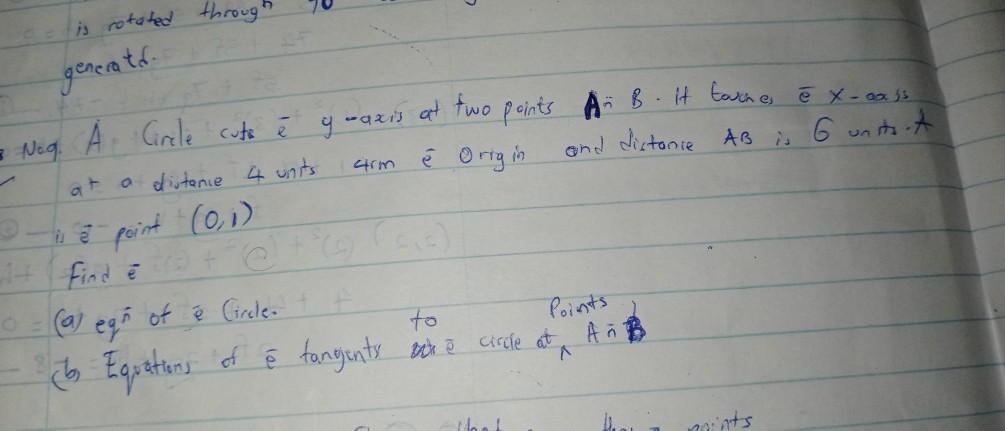 is rotated through 90
generatd.
Neg. A Circle cuts ē y-axis at two points A n̄ B. it touches ē x-axis
at a distance 4 units 4rm ē Origin and distance AB is 6 units. A
is ē point (0,1)
Find ē
(a) eqn̄ of ē Circle.
(b) Equations of ē tangents to ē circle at points A n̄ B
points